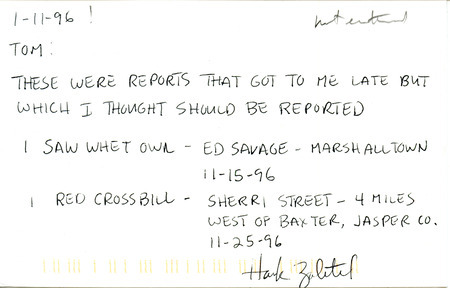 1-11-96 !
TOM:
THESE WERE REPORTS THAT GOT TO ME LATE BUT
WHICH I THOUGHT SHOULD BE REPORTED
1 SAW WHET OWL - ED SAVAGE - MARSHALLTOWN
11-15-96
1 RED CROSSBILL - SHERRI STREET - 4 MILES
WEST OF BAXTER, JASPER CO.
11-25-96
Hank